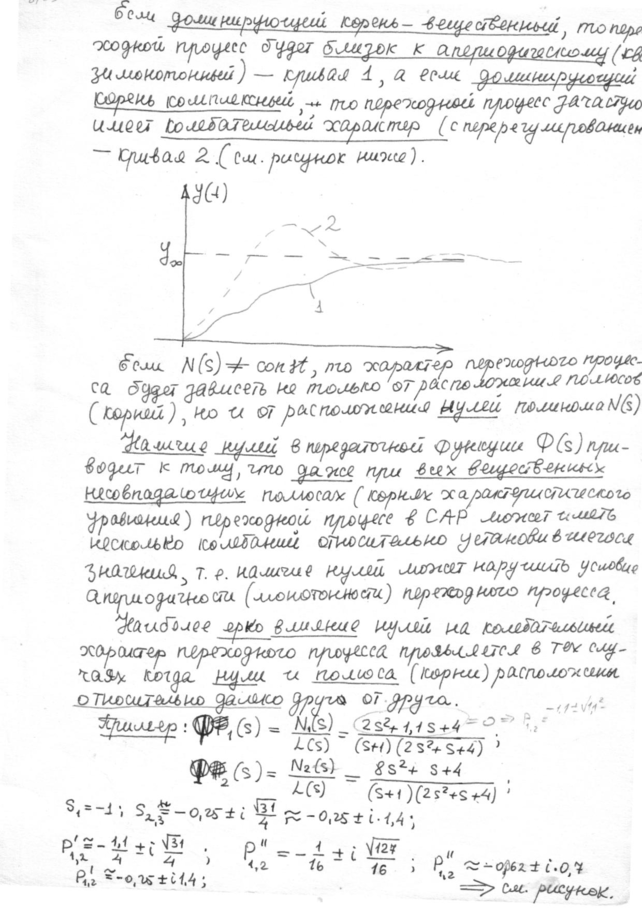 Если доминирующий корень – вещественный, то пере
ходной процесс будет близок к апериодическому (кв
зимонотонный) — кривая 1, а если доминирующий
корень комплексный, – то переходной процесс зачастую
имеет колебательный характер (с перерегулированием
— кривая 2. (см. рисунок ниже).
y(t)
2
y∞
1
Если N(s) ≠ const, то характер переходного процес-
са будет зависеть не только от расположения полюсов
(корней), но и от расположения нулей полинома N(s)
Наличие нулей в передаточной функции Ф(s) при-
водит к тому, что даже при всех вещественных
несовпадающих полюсах (корнях характеристического
уравнения) переходной процесс в САР может иметь
несколько колебаний относительно установившегося
значения, т.е. наличие нулей может нарушить условие
апериодичности (монотонности) переходного процесса.
Наиболее ярко влияние нулей на колебательный
характер переходного процесса проявляется в тех слу-
чаях когда нули и полюса (корни) расположены
относительно далеко друг от друга.
Пример: Ф₁(s) = N₁(s)/L(s) = (2s²+1,1s+4)/((s+1)(2s²+s+4)) = 0 ⇒ P₁,₂ = ;
Ф₂(s) = N₂(s)/L(s) = (8s²+s+4)/((s+1)(2s²+s+4)) ;
S₁ = -1; S₂,₃ = -0,25 ± i √31/4 ≈ -0,25 ± i·1,4;
P'₁,₂ ≅ -1,1/4 ± i √31/4 ; P''₁,₂ = -1/16 ± i √127/16 ; P''₁,₂ ≈ -0,62 ± i·0,7
P'₁,₂ ≅ -0,25 ± i1,4; ⇒ см. рисунок.